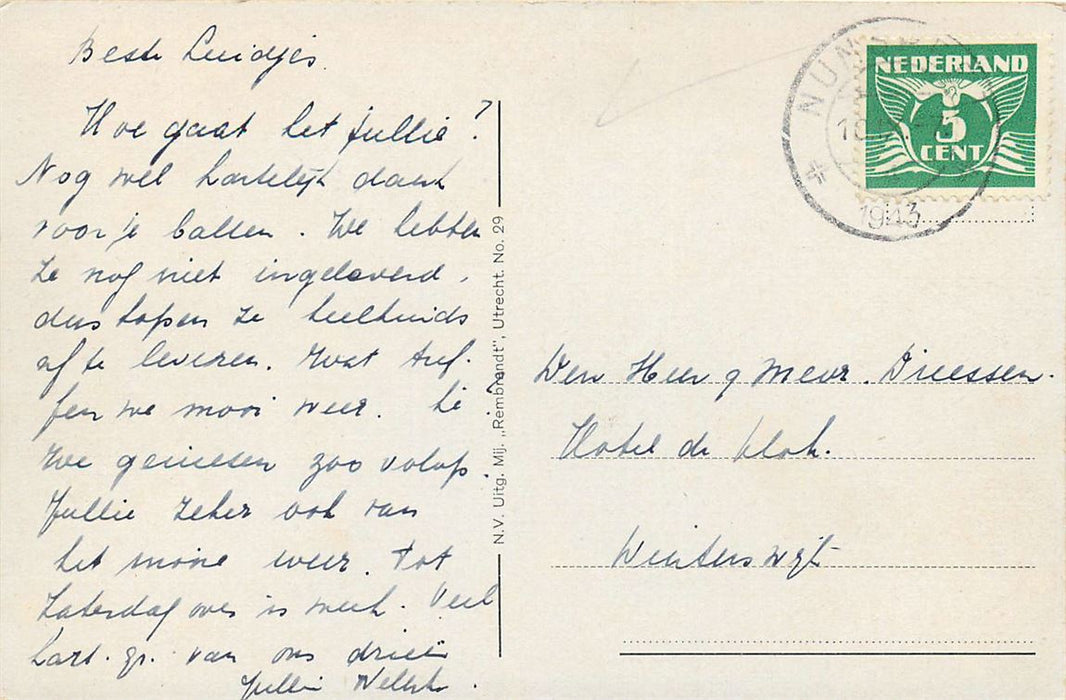 Beste Luidjes.
Hoe gaat het jullie?
Nog wel hartelijk dank
voor je ballen. We hebben
ze nog niet ingeleverd,
dus hopen ze
af te leveren. Wat tref-
fen we mooi weer. hè
We genieten zoo volop.
Jullie zeker ook van
het mooie weer. Tot
Zaterdag over 'n week. Veel
hart. gr. van ons drieën
Jullie
N.V. Uitg. Mij. „Rembrandt”, Utrecht. No. 29
NEDERLAND
CENT
NUNSPEET
1943
Den Heer & Mevr. Driessen.
Hotel de Klok.
Winterswijk